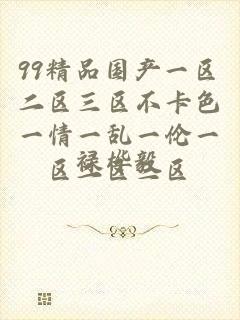 99精品国产一区
二区三区不卡色
一情一乱一伦一
区二区三区
禄桦毅